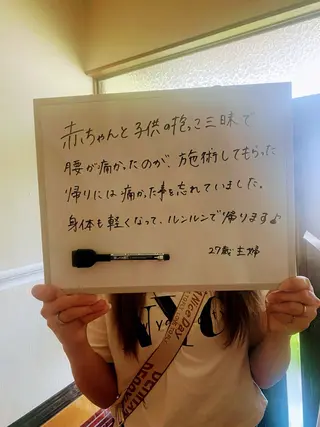 赤ちゃんと子供の抱っこ三昧で
腰が痛かったのが、施術してもらった
帰りには痛かった事を忘れていました。
身体も軽くなって、ルンルンで帰ります♪
27歳 主婦
Nice Day